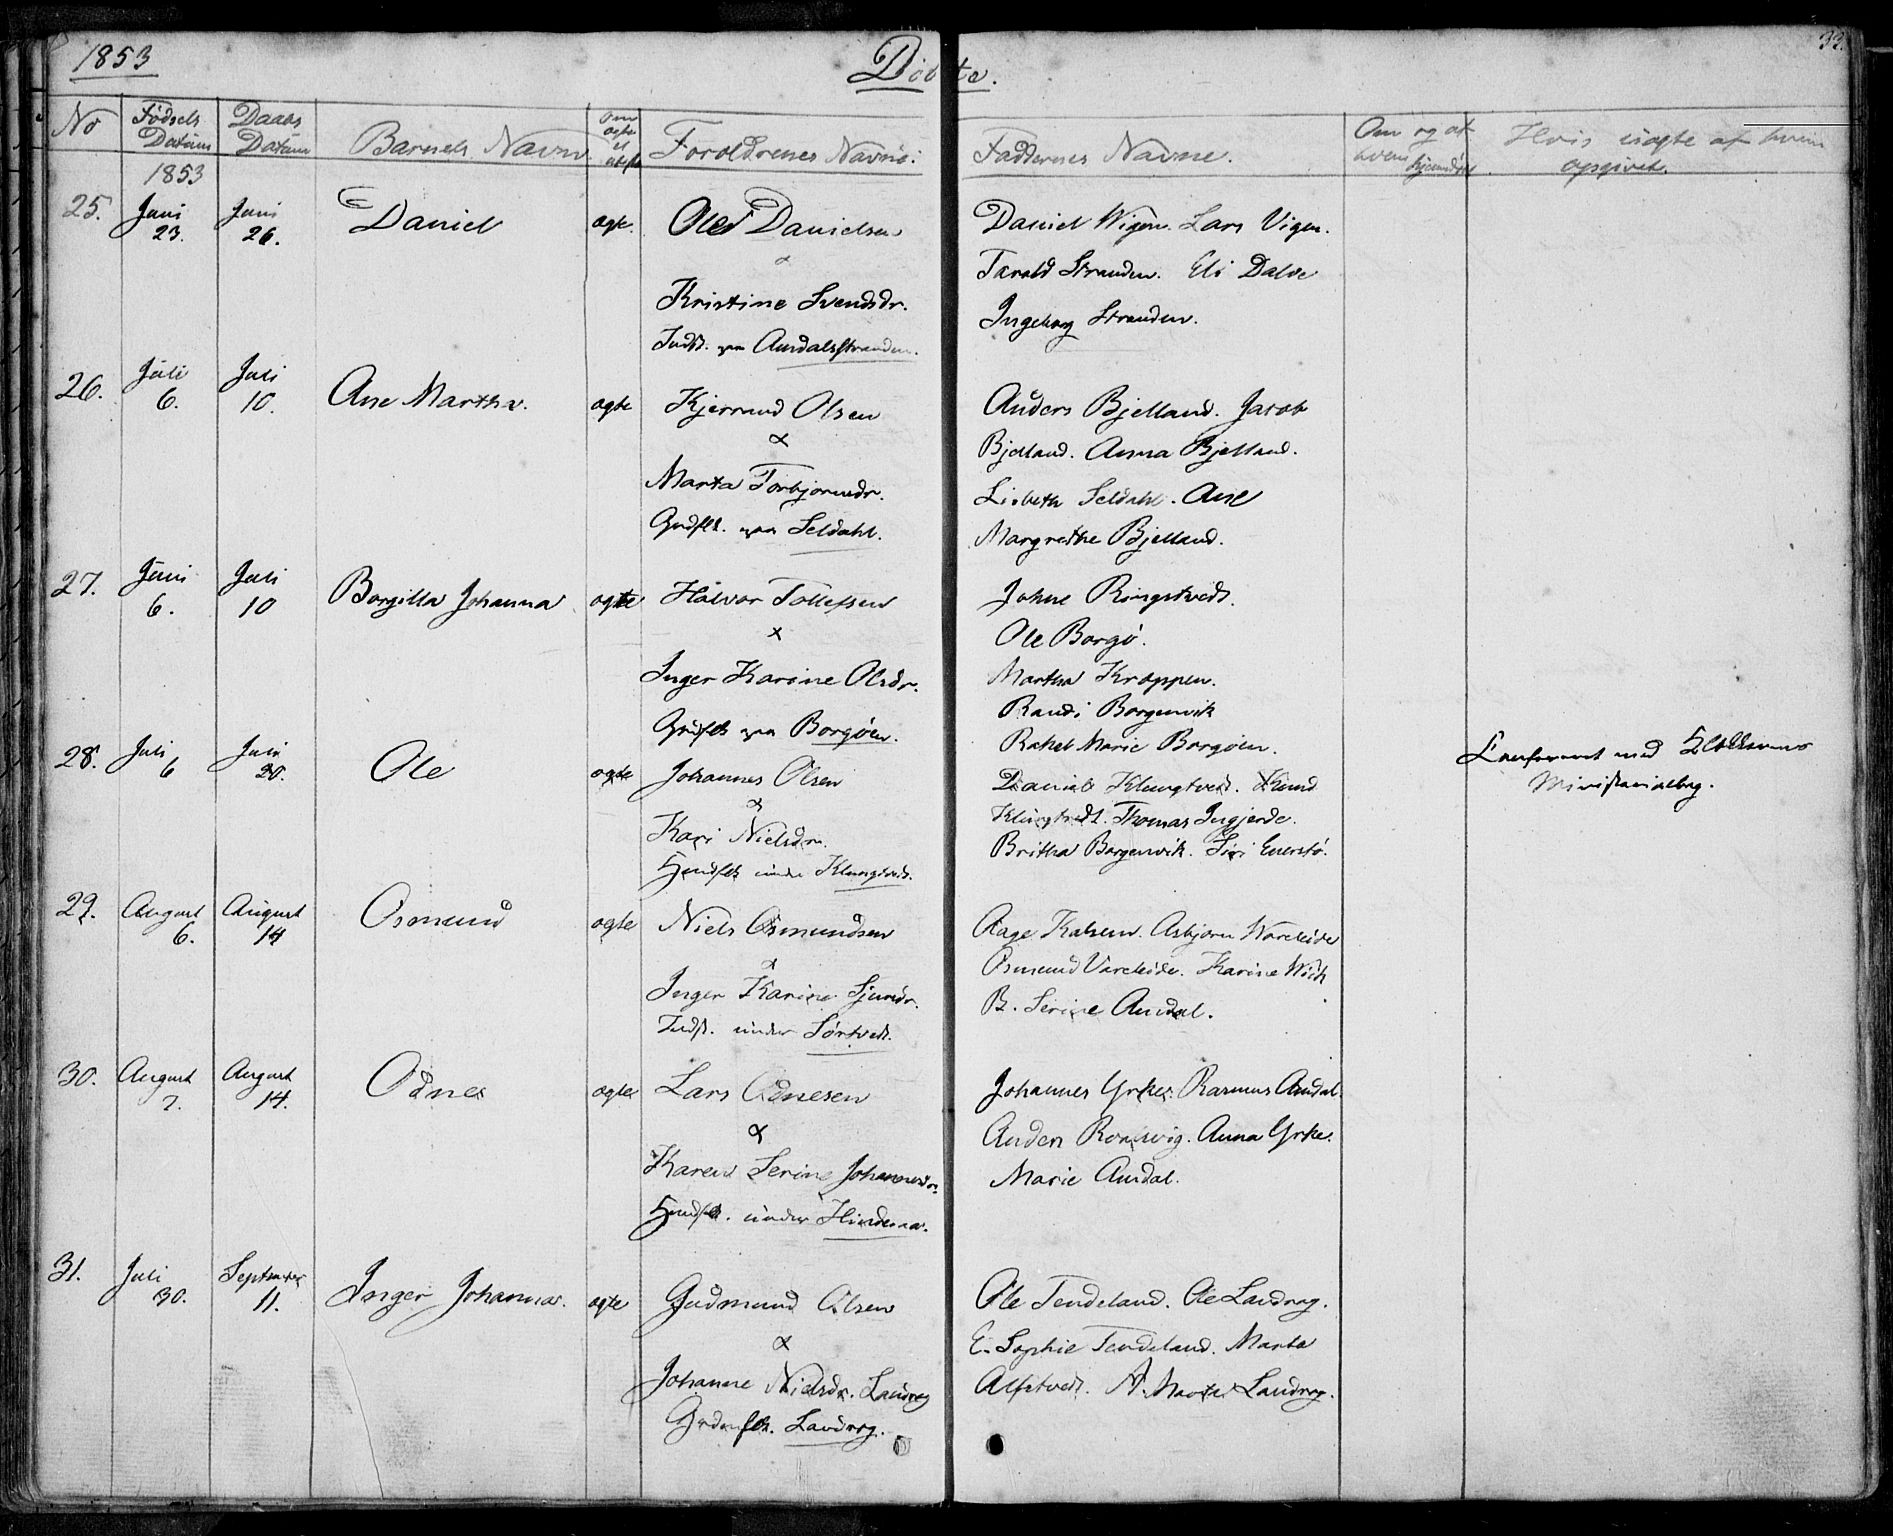 1853
Döbte.
33.
No
Födsels Datum
Daabs Datum
Barnets Navn
om ægte el uægte
Foroldrenes Navne.
Faddernes Navne.
Om og af hvem hjemmedøbt
Hvis uægte af hvem opgivet.
1853
25. Juni 23. Juni 26. Daniel ægte. Ole Danielsen
Kristine Svendsdr.
Indst. paa Aasdalsstranden.
Daniel Wigen. Lars Vigen.
Tarald Stranden. Eli Dalve
Ingeborg Stranden.
26. Juli 6. Juli 10. Ane Martha. ægte Kjerrand Olsen
&
Marta Torbjornsdr.
Grdflk. paa Seldahl.
Anders Bjelland. Jacob
Bjelland. Anna Bjelland.
Lisbeth Seldahl. Ane
Margrethe Bjelland.
27. Juni 6. Juli 10 Borgilla Johanna ægte Halvor Tollefsen
&
Inger Karine Olsdr.
Grdflk paa Borgöen.
Johne Ringstveds.
Ole Borgö.
Martha Kroppen.
Randi Borgenvik
Rakel Marie Borgöen.
28. Juli 6 Juli 20. Ole ægte Johannes Olsen
&
Kari Nielsdr.
Huusflk under Klungtvedt.
Daniel Klungtvedt. Knud
Klungtvedt. Thomas Ingjerde.
Britha Borgenvik. Siri Enerstö.
Conforeret med Klokkerens
Ministerialbog.
29. August 6. August 14 Osmund ægte Niels Osmundsen
&
Inger Karine Sjursdr.
Indst. under Sørtvedt.
Aage Kalsem. Asbjorn Wareleide
Osmund Vareleide. Karine Wick
B. Serine Amdal.
30. August 7. August 14. Odne ægte Lars Odnesen
&
Karen Serine Johannesdr.
Huusflk. under Hinderna.
Johannes Yrke. Rasmus Amdal.
Anders Ronsvig. Anna Yrke.
Marie Amdal.
31. Juli 30. September 11. Inger Johanna. ægte Gudmund Olsen
&
Johanne Nielsdr. Landrog
Grdmflk. Landrog.
Ole Tendeland. Ole Landrog.
E. Sophie Tendeland. Marta
Alfstvedt. A. Marta Landrog.